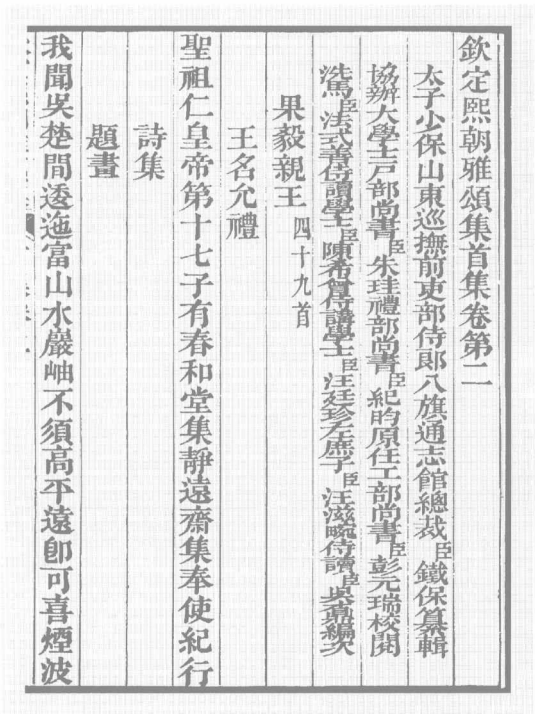 欽定熙朝雅頌集首集卷第二
太子少保山東巡撫前吏部侍郎八旗通志館總裁臣鐵保纂輯
協辦大學士戶部尚書臣朱珪禮部尚書臣紀昀原任工部尚書臣彭元瑞校閱
洗馬臣法式善侍讀學士臣陳希曾侍講學士臣汪廷珍左庶子臣汪滋畹侍讀臣吳鼒編次
果毅親王四十九首
王名允禮
聖祖仁皇帝第十七子有春和堂集靜遠齋集奉使紀行
詩集
題畫
我聞吳楚間逶迤富山水巖岫不須高平遠卽可喜煙波